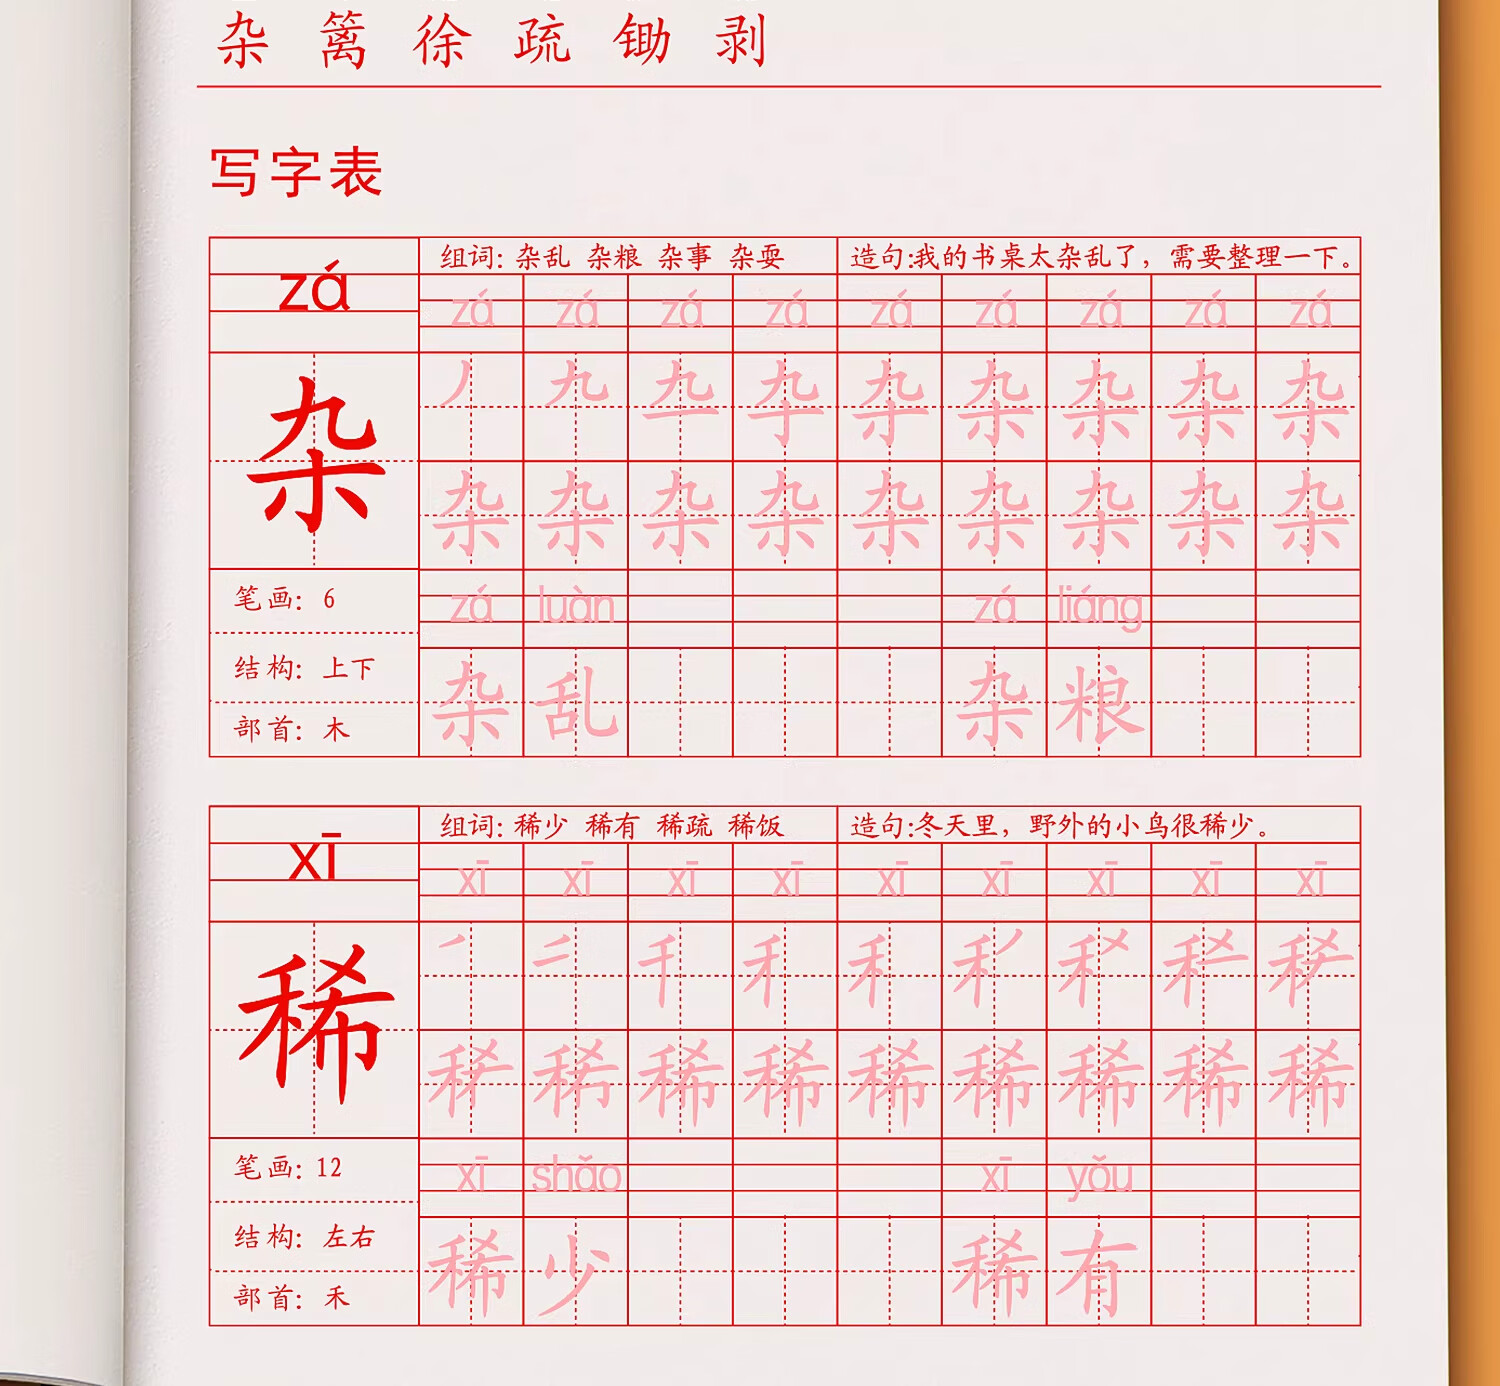 杂 篱 徐 疏 锄 剥
写字表
zá
组词: 杂乱 杂粮 杂事 杂耍
造句:我的书桌太杂乱了，需要整理一下。
zá zá zá zá zá zá zá zá zá
杂
杂 杂 杂 杂
杂 杂 杂 杂 杂 杂 杂 杂 杂
笔画: 6
结构: 上下
部首: 木
zá luàn zá liáng
杂 乱 杂 粮
xī
组词: 稀少 稀有 稀疏 稀饭
造句:冬天里，野外的小鸟很稀少。
xī xī xī xī xī xī xī xī xī
稀
稀 稀 稀 稀 稀 稀 稀
笔画: 12
结构: 左右
部首: 禾
xī shǎo xī yǒu
稀 少 稀 有